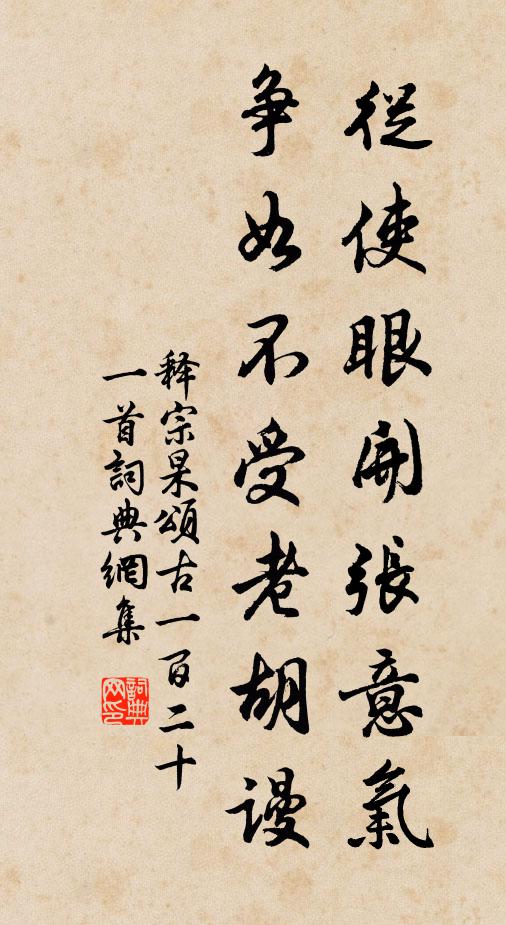 從使眼開張意氣
爭如不受老胡謾
释宗杲頌古一百二十
一首詞典網集
詞典
网印